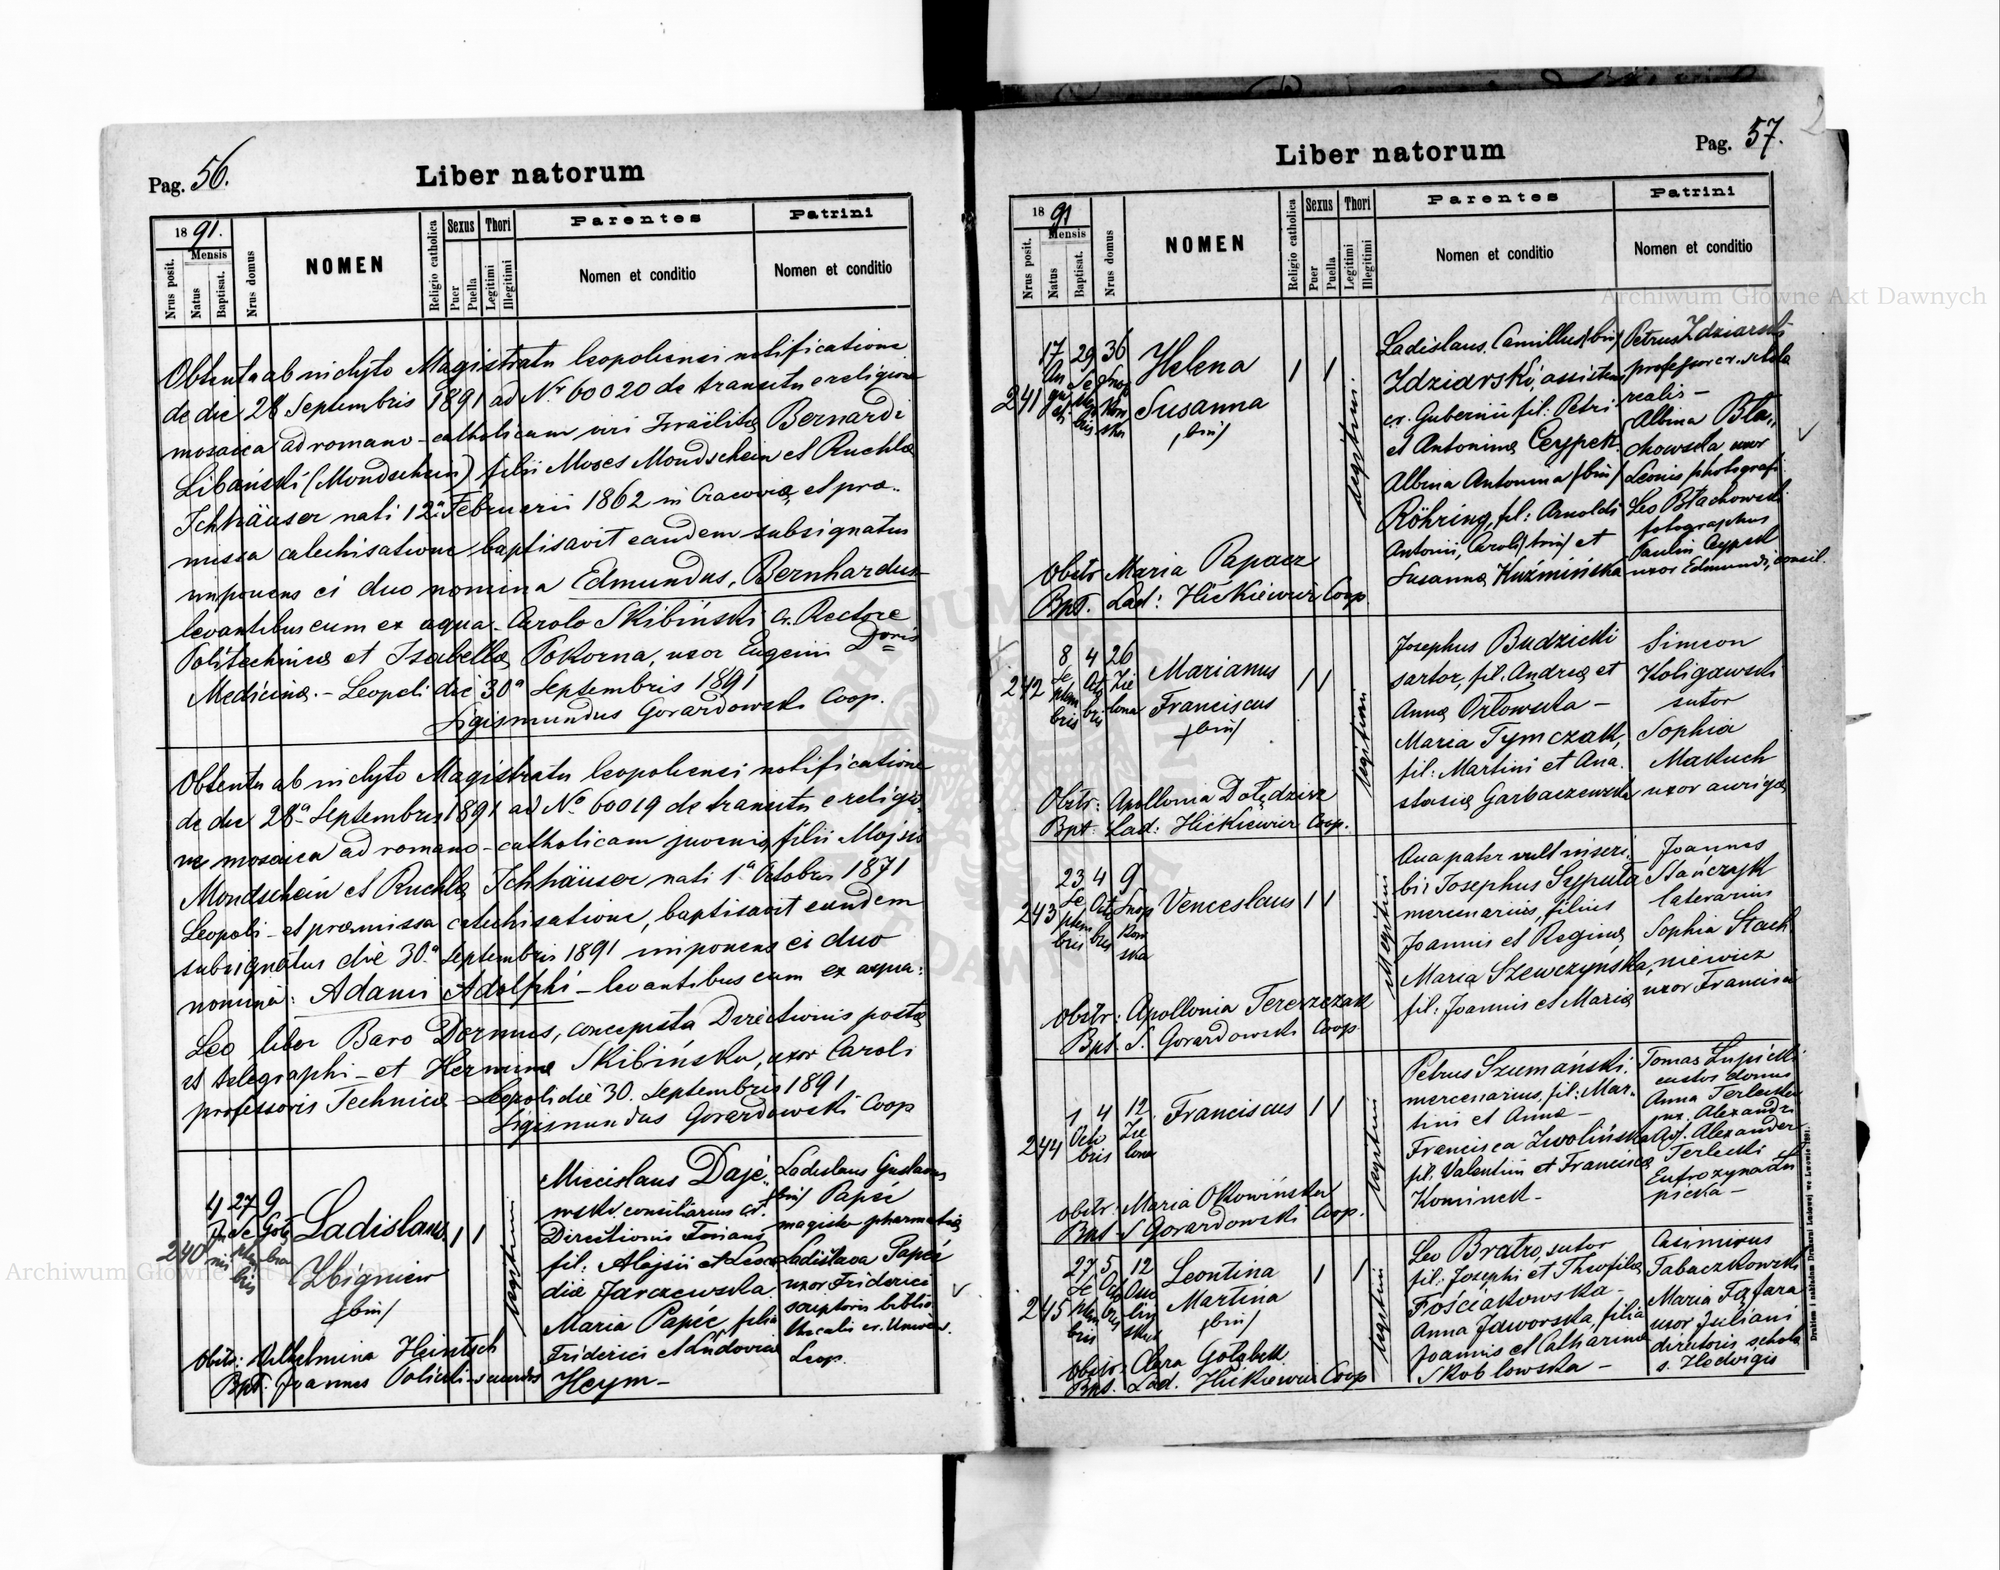 Pag. 56.
Liber natorum
18 91.
Mensis
Nrus posit.
Natus
Baptisat.
Nrus domus
NOMEN
Religio catholica
Sexus
Puer
Puella
Thori
Legitimi
Illegitimi
Parentes
Nomen et conditio
Patrini
Nomen et conditio
Obtenta ab inclyto Magistratu leopoliensi notificatione
de die 28 Septembris 1891 ad Nr 60020 de transitu e religione
mosaica ad romano-catholicam viri Israilitæ Bernardi
Libański (Mondschein) filii Moses Mondschein et Ruchlæ
Ichhäuser nati 12a Februarii 1862 in Cracoviæ et præ-
missa catechisatione baptisavit eundem subsignatus
imponens ei duo nomina Edmundus, Bernhardus
levantibus eum ex aqua Carolo Skibiński cr. Rectore
Politechnicæ et Isabella Pokorna, uxor Eugenii Doris
Medicinæ. - Leopoli die 30a Septembris 1891
Sigismundus Gorardowski Coop.
Obtenta ab inclyto Magistratu leopoliensi notificatione
de die 28a Septembris 1891 ad No 60019 de transitu e religio
ne mosaica ad romano-catholicam juvenis filii Mojsis
Mondschein et Ruchlæ Ichhäuser nati 1a Octobris 1871
Leopoli - et præmissa catechisatione, baptisavit eundem
subsignatus die 30a Septembris 1891 imponens ei duo
nomina: Adami Adolphi - levantibus eum ex aqua:
Leo liber Baro Dormus, concepista Directionis postæ
et telegraphi - et Hermina Skibińska, uxor Caroli
professoris Technicæ - Leopoli die 30. Septembris 1891
Sigismundus Gorardowski Coop
240
4 27 9
Ju Se Gołę
nii ptem bia
bris
Ladislaus
Zbigniew
(bin)
1 1
legitimi
Miecislaus Daje-
wski consiliarius cr.
Directionis Finans
fil: Alojsii et Leoca
diæ Jarczewska
Maria Papée, filia
Friderici et Ludovicæ
Heym -
Ladislaus Gustavus
(bin) Papée
magister pharmatiæ
Ladislava Papée
uxor Friderici
scriptoris biblio
thecalis cr. Univer.
Leop.
Obstr: Wilhelmina Heintsch
Bpt. Joannes Policki - sacerdos
Pag. 57.
Liber natorum
18 91
Mensis
Nrus posit.
Natus
Baptisat.
Nrus domus
NOMEN
Religio catholica
Sexus
Puer
Puella
Thori
Legitimi
Illegitimi
Parentes
Nomen et conditio
Patrini
Nomen et conditio
241
17 29 36
Au Se Snop
gu ptem kow
sti bris ska
Helena
Susanna
(bin)
1 1
legitimi
Ladislaus Camillus (bin)
Zdziarski, assistens
cr. Gubernii fil: Petri
et Antoninæ Ceypek
Albina Antonina (bin)
Röhring, fil: Arnoldi
Antonii, Caroli (trin) et
Susannæ Kuźmińska
Petrus Zdziarski
professor cr. schola
realis -
Albina Bła-
chowska uxor
Leonis photografi
Leo Błachowski
fotographus
Paulin Ceypek
uxor Edmundi, consil.
Obstr Maria Papacz
Bpt. Lad: Hićkiewicz Coop
242
8 4 26
Se Oct Zie
ptem bris lona
bris
Marianus
Franciscus
(bin)
1 1
legitimi
Josephus Budzicki
sartor, fil. Andreæ et
Annæ Orłowska -
Maria Tymczak,
fil: Martini et Ana-
stasiæ Garbaczewska
Simeon
Holigawski
sutor
Sophia
Makuch
uxor aurigæ
Obstr: Apollonia Dołędzisz
Bpt: Lad: Hićkiewicz Coop.
243
23 4 9
Se Oct Snop
ptem bris kow
bris ska
Venceslaus
1 1
illegitimi
Qua pater vult inscri-
bi: Josephus Szyputa
mercenarius, filius
Joannis et Reginæ
Maria Szewczynska,
fil: Joannis et Mariæ
Joannes
Stańczyk
laterarius
Sophia Stach
niewicz
uxor Francisci
Obstr: Apollonia Tereszczak
Bpt. S. Gorardowski Coop.
244
1 4 12
Octo Zie
bris lona
Franciscus
1 1
legitimi
Petrus Szumański,
mercenarius, fil: Mar-
tini et Annæ -
Francisca Zwolińska
fil: Valentini et Franciscæ
Kominek -
Tomas Łupicki
custos domus
Anna Terlecka
ux. Alexandri
Ad. Alexander
Terlecki
Eufrozyna Łu
picka -
Obstr: Maria Okowińska
Bpt S Gorardowski Coop.
245
27 5 12
Se Octo
ptem bris
bris
Leontina
Martina
(bin)
1 1
legitimi
Leo Bratro, sutor
fil: Josephi et Theofilæ
Fościakowska -
Anna Jaworska, filia
Joannis et Catharinæ
Skoblowska -
Casimirus
Tabaczkowski
Maria Fąfara
uxor Juliani
directoris scholæ
s. Hedvigis
Obstr: Clara Gołąbek
Bpt. Lad. Hićkiewicz Coop
Drukiem i nakładem Drukarni Ludowej we Lwowie 1891.
Archiwum Główne Akt Dawnych
Archiwum Główne Akt Dawnych